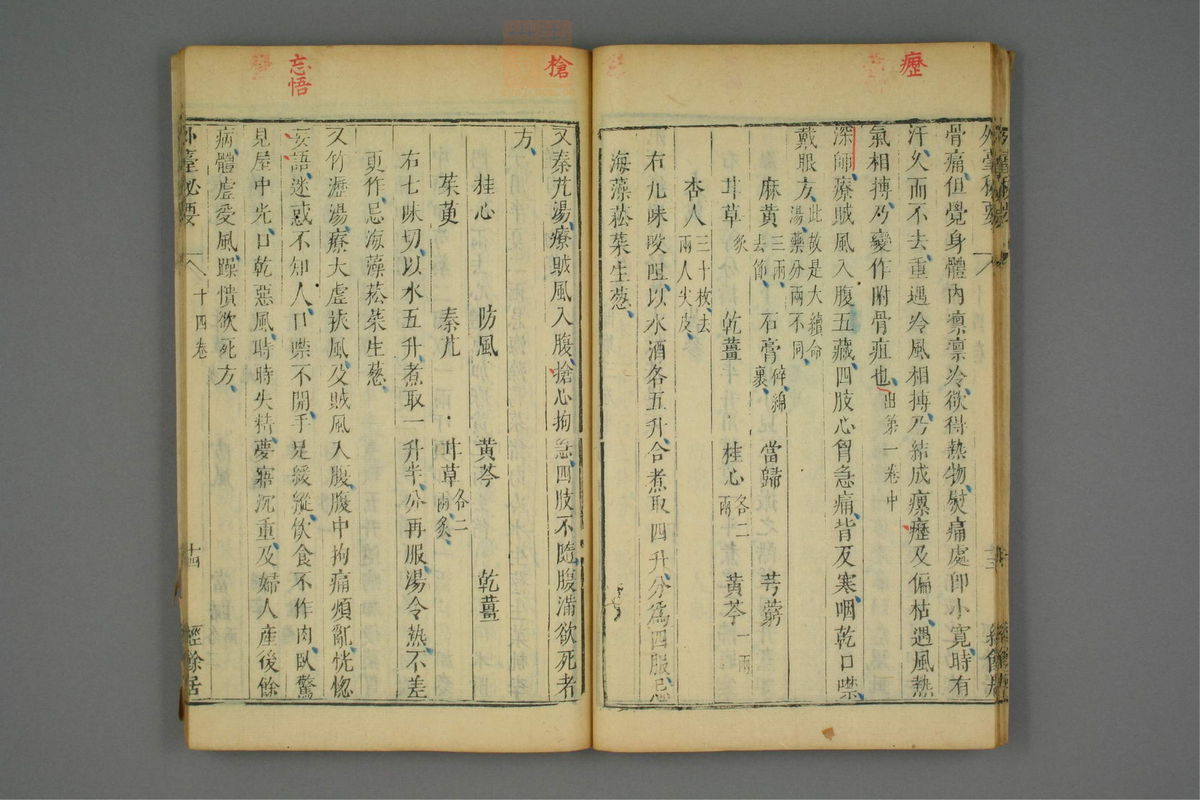 癧
骨痛但覺身體內凛凛冷欲得熱物熨痛處即小寛時有
汗久而不去重遇冷風相搏乃結成瘰癧及偏枯遇風熱
氣相搏乃變作附骨疽也出第一卷中
深師療賊風入腹五藏四肢心胷急痛背反寒咽乾口噤
戴眼方此故是大續命湯藥分兩不同
麻黃三兩去節 石膏碎綿裹 當歸 芎藭
甘草炙 乾薑 桂心各二兩 黃芩一兩
杏人三十枚去兩人尖皮
右九味㕮咀以水酒各五升合煮取四升分爲四服忌
海藻菘菜生葱
搶
又秦艽湯療賊風入腹搶心拘急四肢不隨腹滿欲死者
方
桂心 防風 黃芩 乾薑
茱萸 秦艽 甘草各二兩炙
右七味切以水五升煮取一升半分再服湯令熱不差
更作忌海藻菘菜生葱
又竹瀝湯療大虛挾風及賊風入腹腹中拘痛煩亂恍惚
忘悟
妄語迷惑不知人口噤不開手足緩縱飲食不作肉臥驚
見屋中光口乾惡風時時失精夢寤沉重及婦人産後餘
病體虛受風躁憒欲死方
外臺秘要 十四卷 十四 經餘居